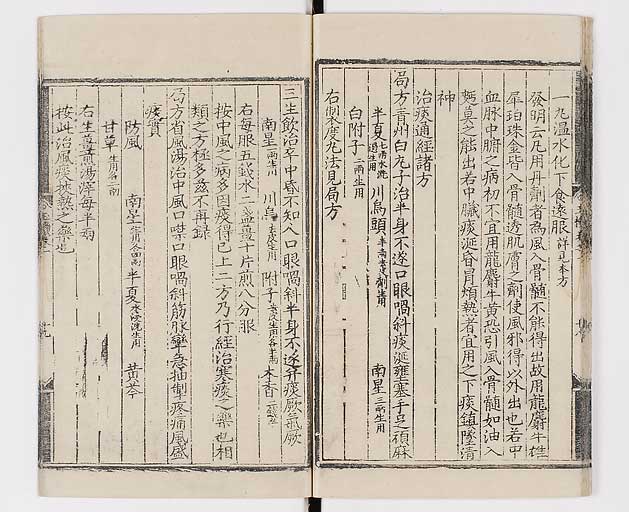 一丸温水化下食遠服詳見本方
發明云凡用丹劑者為風入骨髓不能得出故用龍麝牛雄
犀珀珠金皆入骨髓透肌膚之劑使風邪得以外出也若中
血脉中腑之病初不宜用龍麝牛黃恐引風入骨髓如油入
麵莫之能出若中臓痰涎昏冒煩熱者宜用之下痰鎮墜清
神
治痰通經諸方
局方青州白丸子治半身不遂口眼喎斜痰涎壅塞手足頑麻
半夏七两水洗過生用 川烏頭半两去皮劑生用 南星三两生用
白附子二两生用
右製度丸法見局方
三生飲治卒中昏不知人口眼喎斜半身不遂并痰厥氣厥
南星一两生用 川烏去皮生用 附子去皮生用各半两 木香二錢五
右每服五錢水二盞薑十片煎八分服
按中風之病多因痰得已上二方乃行經治塞痰之藥也相
類之方極多茲不再錄
局方省風湯治中風口噤口眼喎斜筋脉攣急抽掣疼痛風盛
痰實
防風 南星生用各四两 半夏水浸洗生用 黃芩
甘草生用各二两
右生薑煎湯滓每半两
按此治風痰挟熱之藥也